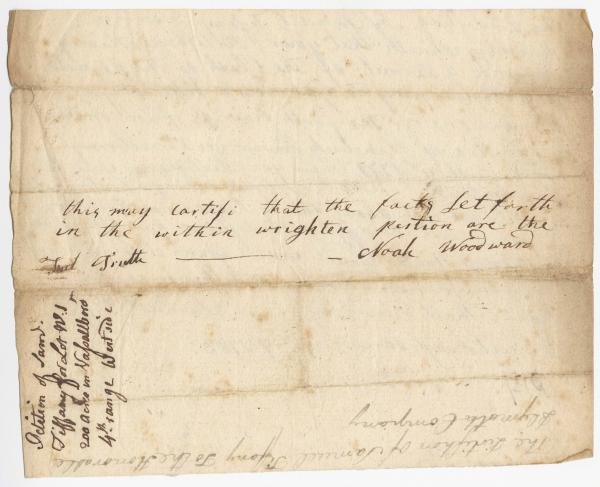 this may cartifi that the facts Set forth
in the within wrighten pertion are the
Truth — Noah Woodward
Petition of Saml.
Tiffany for Lot No. 1
200 acres in Vassallboro
4th range West side
The Petition of Samuel Tiffany To the Honorable
Plymoth Company